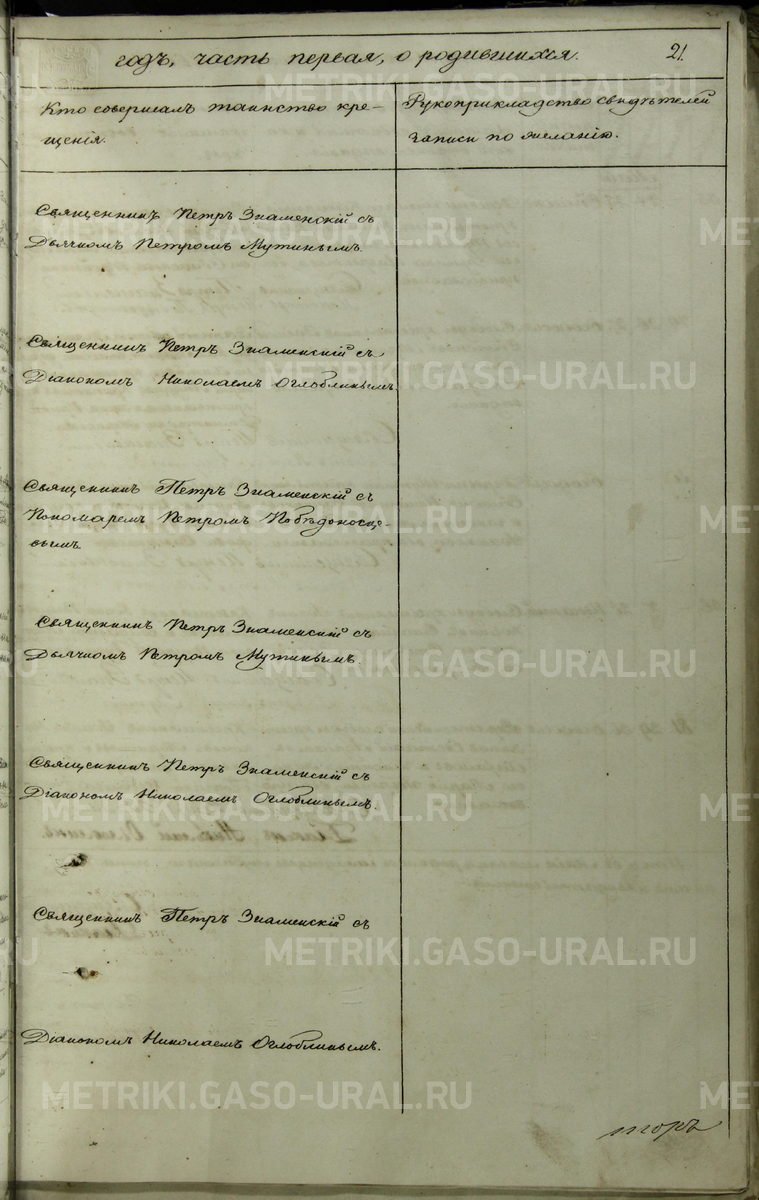 годъ, часть первая, о родившихся. 21.
Кто совершалъ таинство кре-
щенія.
Рукоприкладство свидѣтелей
записи по желанію.
Священникъ Петръ Знаменскій съ
Дьячкомъ Петромъ Мутинымъ.
Священникъ Петръ Знаменскій съ
Діакономъ Николаемъ Оглоблинымъ.
Священникъ Петръ Знаменскій съ
Пономаремъ Петромъ Побѣдоносце-
вымъ.
Священникъ Петръ Знаменскій съ
Дьячкомъ Петромъ Мутинымъ.
Священникъ Петръ Знаменскій съ
Діакономъ Николаемъ Оглоблинымъ.
Священникъ Петръ Знаменскій съ
Діакономъ Николаемъ Оглоблинымъ.
METRIKI.GASO-URAL.RU